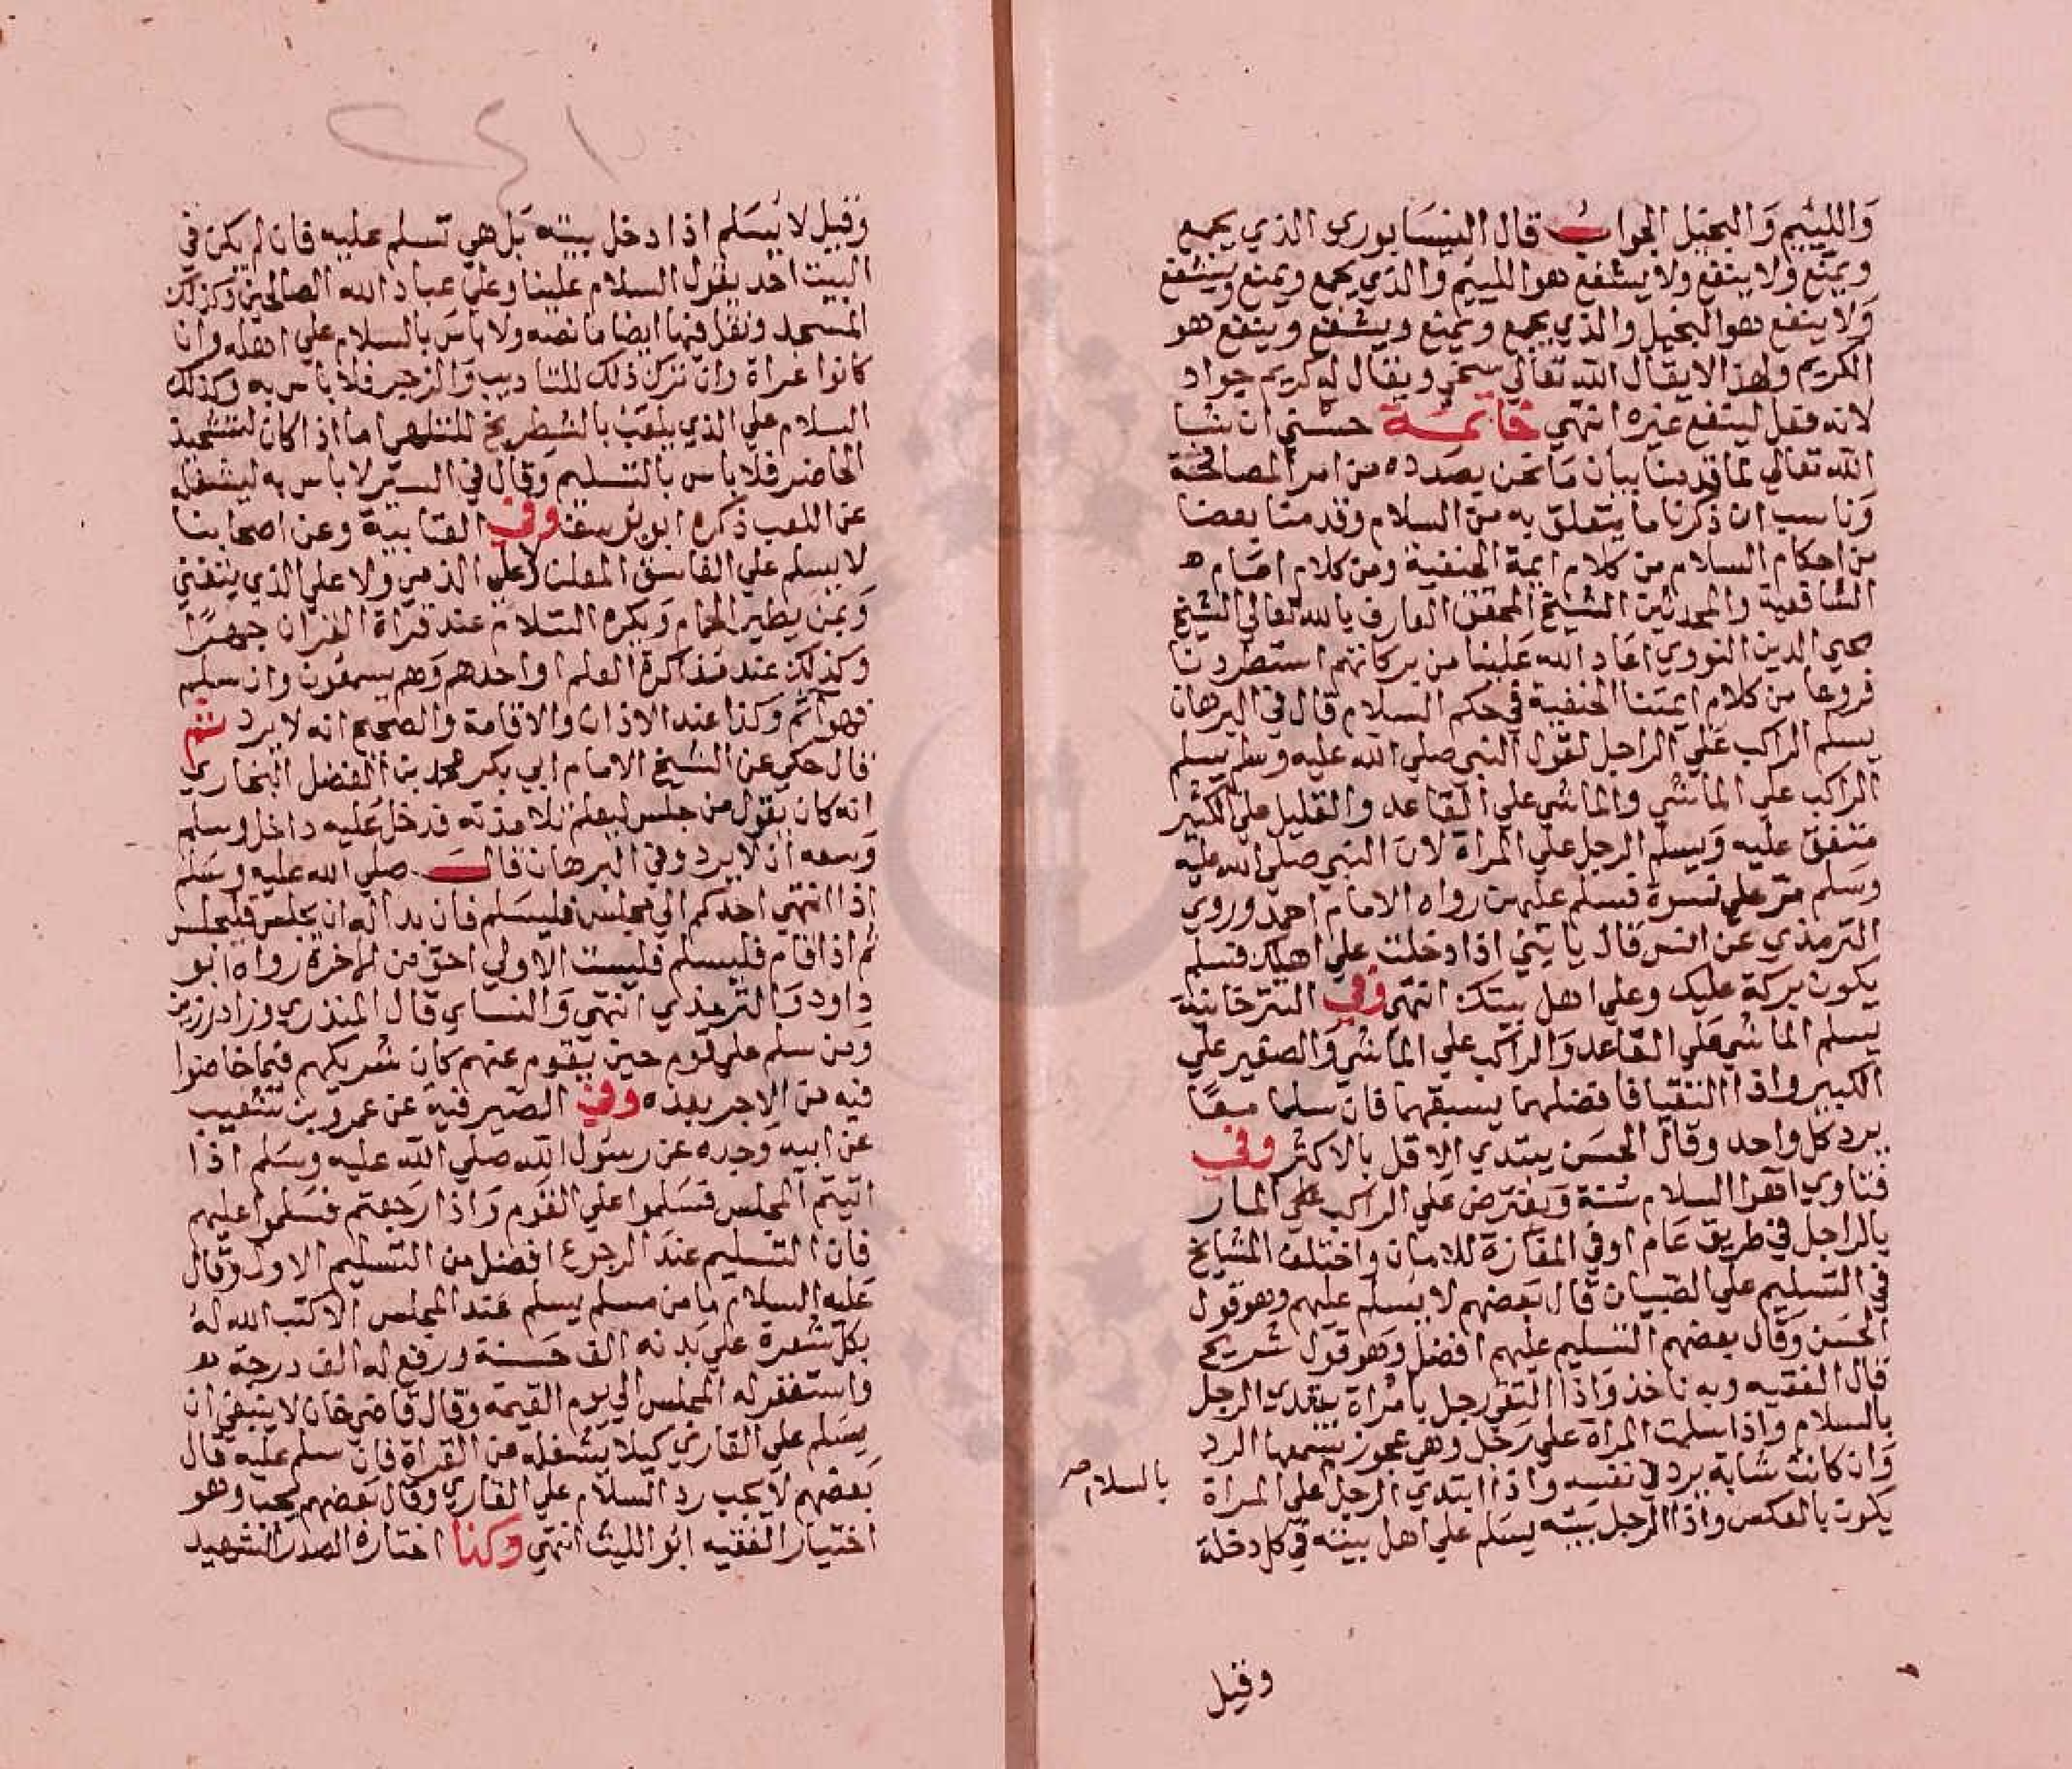 واللئيم والبخيل الجواب قال النيسابوري الذي يجمع
ويمنع ولا ينفع ولا يشفع هو اللئيم والذي يجمع ويمنع ويشفع
ولا ينفع هو البخيل والذي يجمع ويمنع ويشفع وينفع هو
الكريم ولهذا لا يقال الله تعالى سخي ويقال له كريم جواد
لانه فعل لينفع غيره انتهى خاتمة حسنى ان شا
الله تعالى لما قدمنا بيان ما نحن بصدده من امر المصافحة
وناسب ان ذكرنا ما يتعلق به من السلام وقدمنا بعضا
من احكام السلام من كلام ايمة الحنفية ومن كلام امام
الشافعية والمحدثين الشيخ المحقق العارف بالله تعالى الشيخ
محيي الدين النووي اعاد الله علينا من بركاتهم استطردنا
فروعا من كلام ايمتنا الحنفية في حكم السلام قال في البرهان
يسلم الراكب على الراجل لقول النبي صلى الله عليه وسلم يسلم
الراكب على الماشي والماشي على القاعد والقليل على الكثير
متفق عليه ويسلم الرجل على المراة لان النبي صلى الله عليه
وسلم مر على نسوة فسلم عليهن رواه الامام احمد وروي
الترمذي عن انس قال يا بني اذا دخلت على اهلك فسلم
يكون بركة عليك وعلى اهل بيتك انتهى وفي التترخانية
يسلم الماشي على القاعد والراكب على الماشي والصغير على
الكبير واذا التقيا فافضلهما يسبقهما فان سلما معا
يرد كل واحد وقال الحسن يبتدي الاقل بالاكثر وفي
فتاوي اهوا السلام سنة ويفترض على الراكب على المار
بالراجل في طريق عام او في المفازة للامان واختلف المشايخ
في التسليم على الصبيان قال بعضهم لا يسلم عليهم وهو قول
الحسن وقال بعضهم التسليم عليهم افضل وهو قول شريح
قال الفقيه وبه ناخذ واذا التقى رجل بامراة يبتدي الرجل
بالسلام واذا سلمت المراة على رجل وهي عجوز يسمعها الرد
وان كانت شابة يرد في نفسه واذا ابتدي الرجل على المراة
بالسلام صح
يكون بالعكس واذا الرجل بيته يسلم على اهل بيته في كل دخلة
وقيل
٢٤١
وقيل لا يسلم اذا دخل بيته بل هي تسلم عليه فان لم يكن في
البيت احد يقول السلام علينا وعلى عباد الله الصالحين وكذلك
المسجد ونقل فيها ايضا ما نصه ولا باس بالسلام على اهله وان
كانوا عراة وان ترك ذلك للتاديب والزجر فلا باس به وكذلك
السلام على الذي يلعب بالشطرنج للتلهي اما اذا كان لتشحيذ
الخاطر فلا باس بالتسليم وقال في السير لا باس به ليشغله
عن اللعب ذكره ابو يوسف وفي العتابية وعن اصحابنا
لا يسلم على الفاسق المعلن على الذمي ولا على الذي يتغنى
وبمن يطير الحمام ويكره السلام عند قراة القران جهرا
وكذلك عند مذاكرة العلم او احدهم وهم يسمعون وان سلم
فهو آثم وكذا عند الاذان والاقامة والصحيح انه لا يرد ثم
قال حكي عن الشيخ الامام ابي بكر محمد بن الفضل البخاري
انه كان يقول من جلس ليعلم تلامذته فدخل عليه داخل وسلم
وسعه ان لا يرد وفي البرهان قال صلى الله عليه وسلم
اذا انتهى احدكم الى مجلس فليسلم فان بدا له ان يجلس فليجلس
ثم اذا قام فليسلم فليست الاولى احق من الاخرة رواه ابو
داود والترمذي انتهى والنساي قال المنذري وزاد رزين
ومن سلم على قوم حين يقوم عنهم كان شريكهم فيما خاضوا
فيه من الاجر بعده وفي الصيرفية عن عمرو بن شعيب
عن ابيه وجده عن رسول الله صلى الله عليه وسلم اذا
اتيتم المجلس فسلموا على القوم واذا رجعتم فسلموا عليهم
فان التسليم عند الرجوع افضل من التسليم الاول وقال
عليه السلام ما من مسلم يسلم عند المجلس الا كتب الله له
بكل شعرة على بدنه الف حسنة ورفع له الف درجة
واستغفر له المجلس الى يوم القيمة وقال قاضي خان لا ينبغي ان
يسلم على القاري كيلا يشغله عن القراة فان سلم عليه قال
بعضهم لا يجب رد السلام على القاري وقال بعضهم يجب وهو
اختيار الفقيه ابو الليث انتهى وكذا اختاره الصدر الشهيد